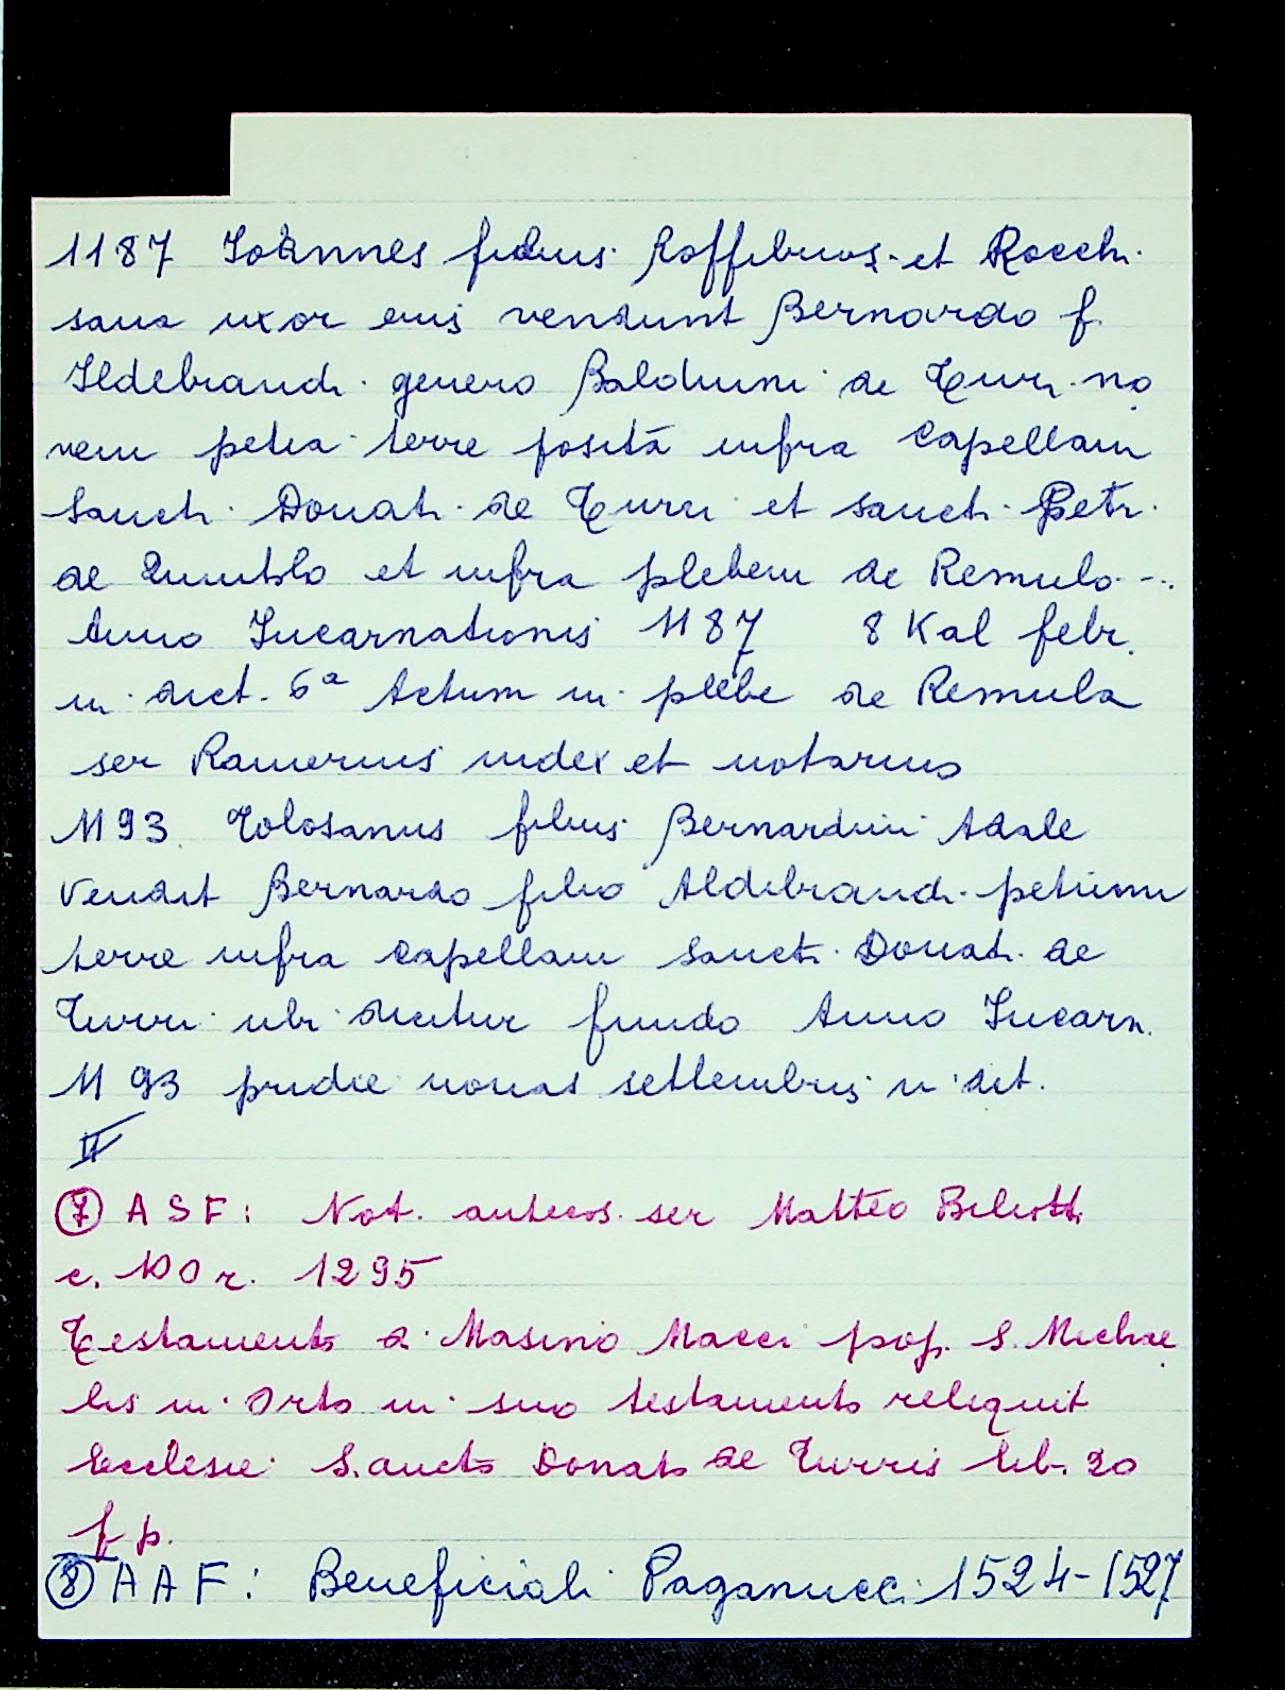 1187 Joannes filius Roffibuos et Rocchi
sana uxor eius vendunt Bernardo f.
Ildebrandi genero Balduini de Turri no
vem petia terre posita infra capellam
Sancti Donati de Turri et sancti Petri
de Quintolo et infra plebem de Remulo -..
Anno Incarnationis 1187 8 Kal febr.
in dict. 6a Actum in plebe de Remula
ser Ranierius iudex et notarius
1193. Tolosanus filius Bernardini Adale
vendit Bernardo filio Aldibrandi petium
terre infra capellam Sancti Donati de
Turri ubi dicitur fundo Anno Incarn.
1193 pridie nonas settembris in dit.
II
(7) ASF: Not. antecos. ser Matteo Biliotti
c. 100 r. 1295
Testamento di Masino Macci pop. S. Michae
lis in Orto in suo testamento reliquit
Ecclesie Sancto Donato de Turris lib. 20
f p.
(8) AAF: Beneficiali Paganucci 1524-1527